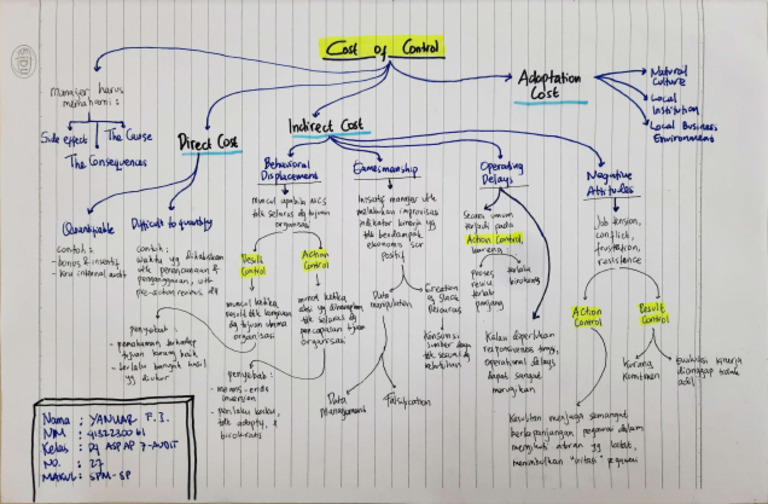 Cost of Control
Manajer harus
memahami :
Side effect
The Cause
The Consequences
Direct Cost
Quantifiable
contoh :
- bonus & insentif
- krw internal audit
Difficult to quantify
contoh :
waktu yg dihabiskan
utk perencanaan &
penganggaran, utk
pre-action reviews dll
Indirect Cost
Behavioral
Displacement
muncul apabila MCS
tdk selaras dg tujuan
organisasi
Result
Control
muncul ketika
result tdk kongruen
dg tujuan utama
organisasi
penyebab :
- pemahaman terhadap
tujuan kurang baik
- terlalu banyak hasil
yg diukur
Action
Control
muncul ketika
aksi yg diharapkan
tdk selaras dg
pencapaian tujuan
organisasi
penyebab :
- means-ends
inversion
- perilaku kaku,
tdk adaptif, &
birokratis
Gamesmanship
manajer utk
melakukan improvisasi
indikator kinerja yg
tdk berdampak
ekonomis scr
positif
Data
manipulation
Data
Management
Falsification
Creation
of Slack
Resources
Konsumsi
sumber daya
tdk sesuai dg
kebutuhan
Operating
Delays
Secara umum
terjadi pada
Action Control,
karena
proses
reviu
terlalu
panjang
terlalu
birokrasi
Kalau diperlukan
responsiveness tinggi,
operational delays
dapat sangat
merugikan
Negative
Attitudes
Job tension,
conflict,
frustration,
resistence
Action
Control
Kesulitan menjaga semangat
berkepanjangan pegawai dalam
mengikuti aturan yg ketat,
menimbulkan "iritasi" pegawai
Result
Control
Kurang
komitmen
Evaluasi kinerja
dianggap tidak
adil
Adaptation
Cost
Natural
Culture
Local
Institution
Local Business
Environment
Nama : YANUAR F. I.
NIM : 4132230061
Kelas : D4 ASP AP 7-AUDIT
NO. : 27
MAKUL : SPM-SP